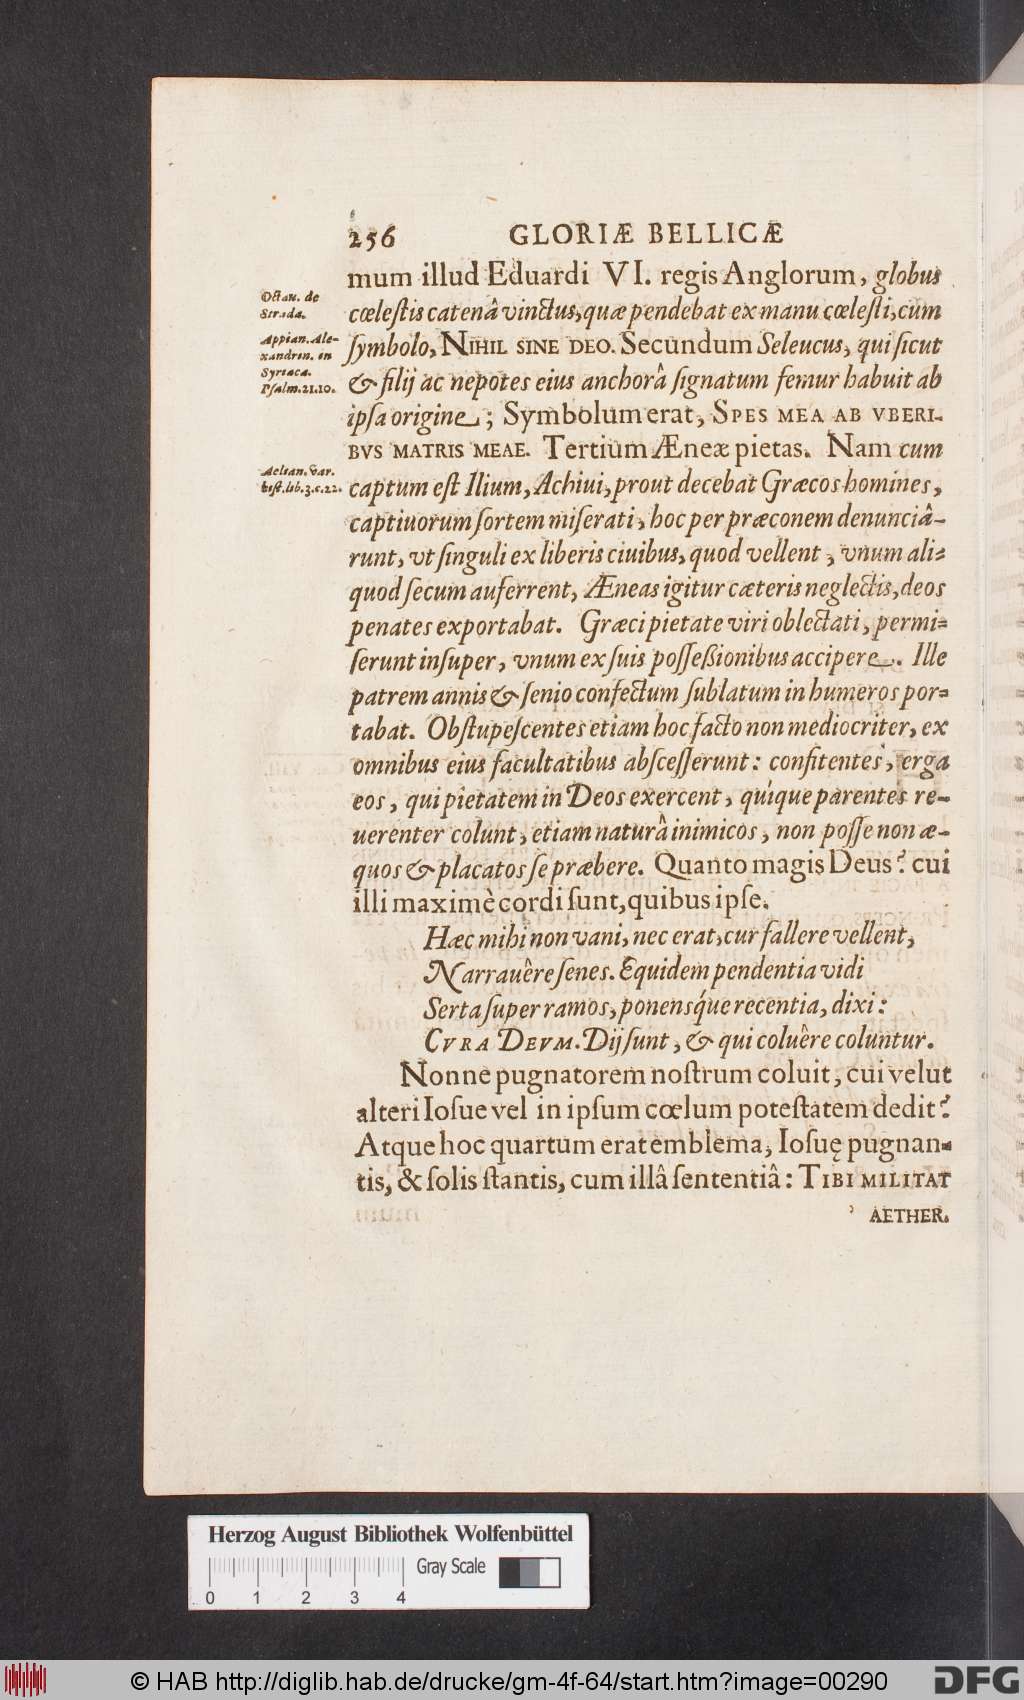 256 GLORIÆ BELLICÆ
mum illud Eduardi VI. regis Anglorum, globus
Octau. de
Strada.
cœleſtis catenâ vinctus, quæ pendebat ex manu cœleſti, cum
Appian. Ale-
xandrin. in
Syriaca.
Pſalm. 21. 10.
ſymbolo, NIHIL SINE DEO. Secundum Seleucus, qui ſicut
& filij ac nepotes eius anchorâ ſignatum femur habuit ab
ipſa origine; Symbolum erat, SPES MEA AB VBERI-
BVS MATRIS MEAE. Tertium Æneæ pietas. Nam cum
Aelian. var.
hiſt. lib. 3. c. 22.
captum eſt Ilium, Achiui, prout decebat Græcos homines,
captiuorum ſortem miſerati, hoc per præconem denunciâ-
runt, vt ſinguli ex liberis ciuibus, quod vellent, vnum ali-
quod ſecum auferrent, Æneas igitur cæteris neglectis, deos
penates exportabat. Græci pietate viri oblectati, permi-
ſerunt inſuper, vnum ex ſuis poſſeßionibus accipere. Ille
patrem annis & ſenio confectum ſublatum in humeros por-
tabat. Obſtupeſcentes etiam hoc facto non mediocriter, ex
omnibus eius facultatibus abſceſſerunt: confitentes, erga
eos, qui pietatem in Deos exercent, quíque parentes re-
uerenter colunt, etiam naturâ inimicos, non poſſe non æ-
quos & placatos ſe præbere. Quanto magis Deus? cui
illi maximè cordi ſunt, quibus ipſe.
Hæc mihi non vani, nec erat, cur fallere vellent,
Narrauêre ſenes. Equidem pendentia vidi
Serta ſuper ramos, ponensq́ue recentia, dixi:
CVRA DEVM. Dij ſunt, & qui coluêre coluntur.
Nonne pugnatorem noſtrum coluit, cui velut
alteri Ioſue vel in ipſum cœlum poteſtatem dedit?
Atque hoc quartum erat emblema, Ioſuę pugnan-
tis, & ſolis ſtantis, cum illâ ſententiâ: TIBI MILITAT
AETHER.
Herzog August Bibliothek Wolfenbüttel
Gray Scale
0 1 2 3 4
© HAB http://diglib.hab.de/drucke/gm-4f-64/start.htm?image=00290
DFG